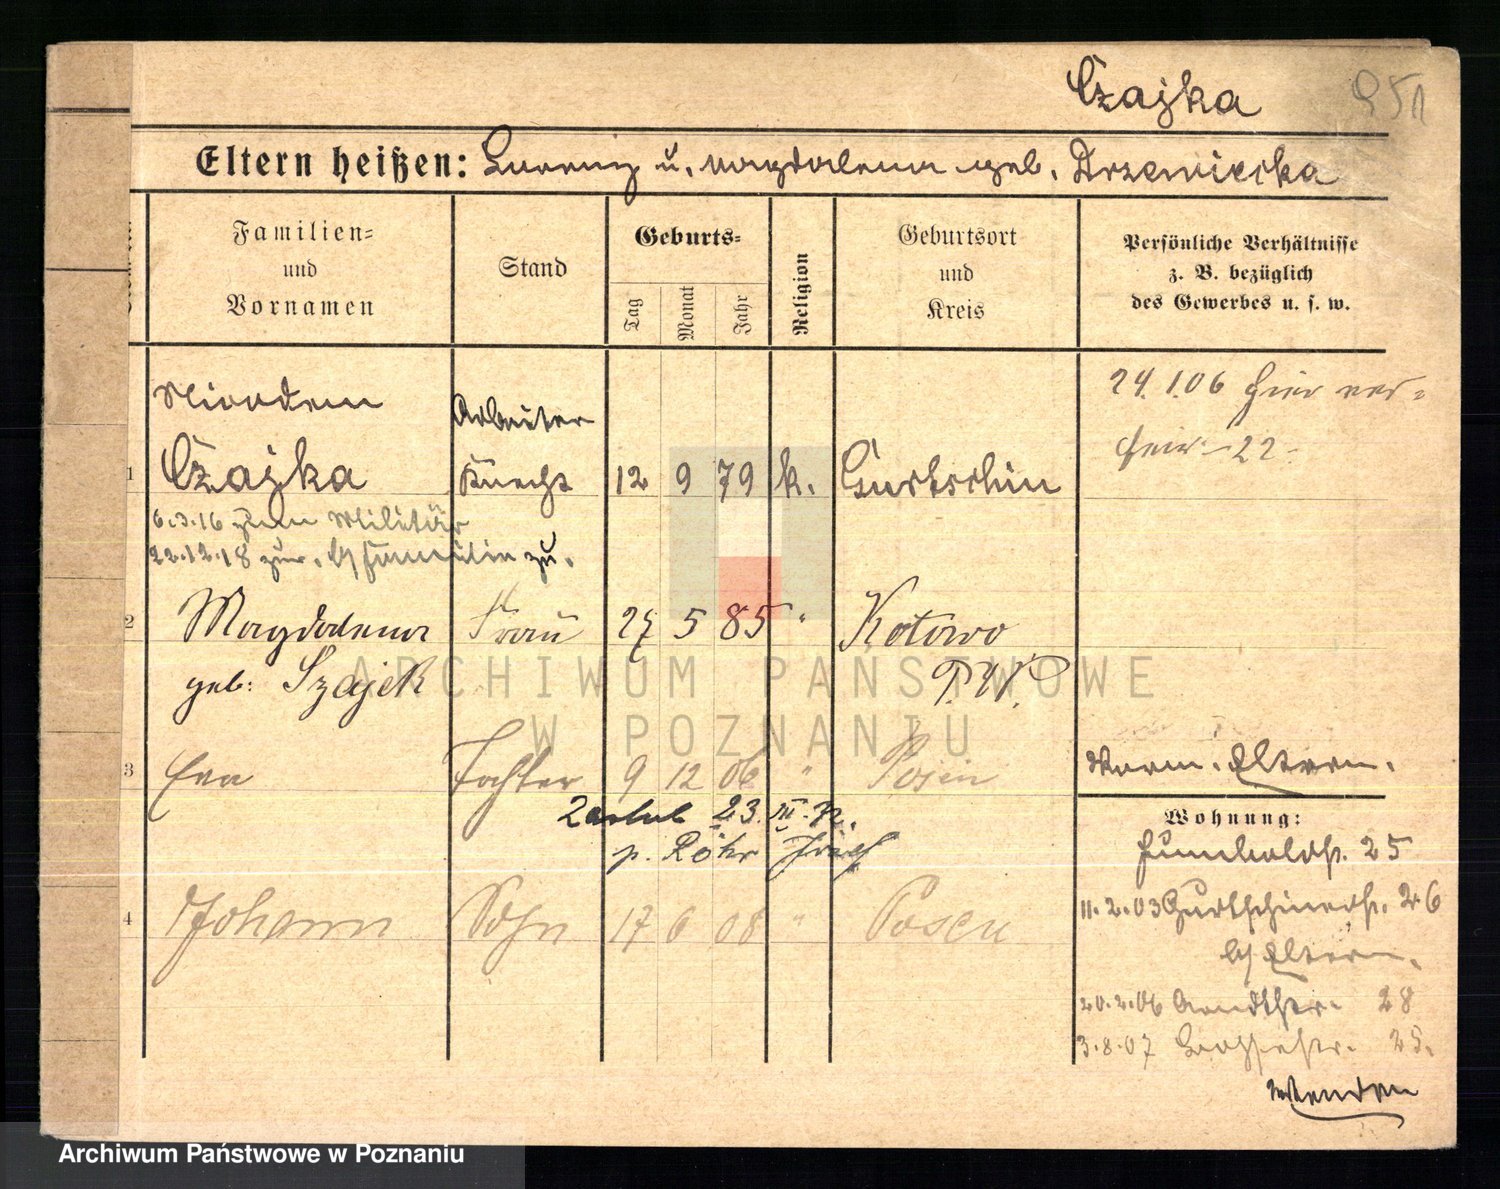 Czajka 951
Eltern heißen: Lorenz u. Magdalena geb. Drzewiecka
Familien- und Vornamen
Stand
Geburts-
Tag Monat Jahr
Religion
Geburtsort und Kreis
Persönliche Verhältnisse z. B. bezüglich des Gewerbes u. s. w.
Nicodem
Arbeiter
1 Czajka Knecht 12 9 79 k. Gurtschin
24.1.06 hier ver-
heir.
6.3.16 zum Militär
22.12.18 zur. zu.
2 Magdalena Frau 27 5 85 " Kotowo
geb: Szajek P.W.
3 Eva Tochter 9 12 06 " Posen
Zaślub 23. III.
p. Röhr Józef
4 Johann Sohn 17 6 08 " Posen
Vorm. Eltern.
Wohnung:
Humboldtstr. 25
11.2.03 Gurtschinerstr. 26
b/ Eltern.
20.2.06 28
3.8.07 25.
Wenden
ARCHIWUM PAŃSTWOWE
W POZNANIU
Archiwum Państwowe w Poznaniu